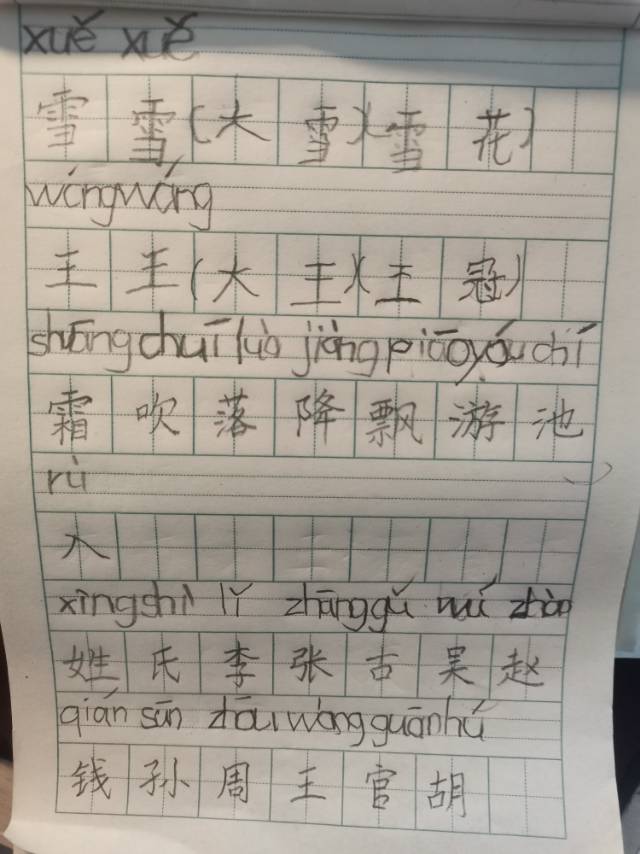 xuě xuě
雪雪(大雪)(雪花)
wáng wáng
王王(大王)(王冠)
shuāng chuī luò jiàng piāo yóu chí
霜吹落降飘游池
rù
入
xìng shì lǐ zhāng gǔ wú zhào
姓氏李张古吴赵
qián sūn zhōu wáng guān hú
钱孙周王官胡